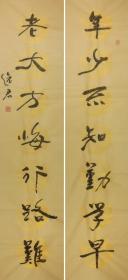 年少不知勤学早
老大方悔行路難